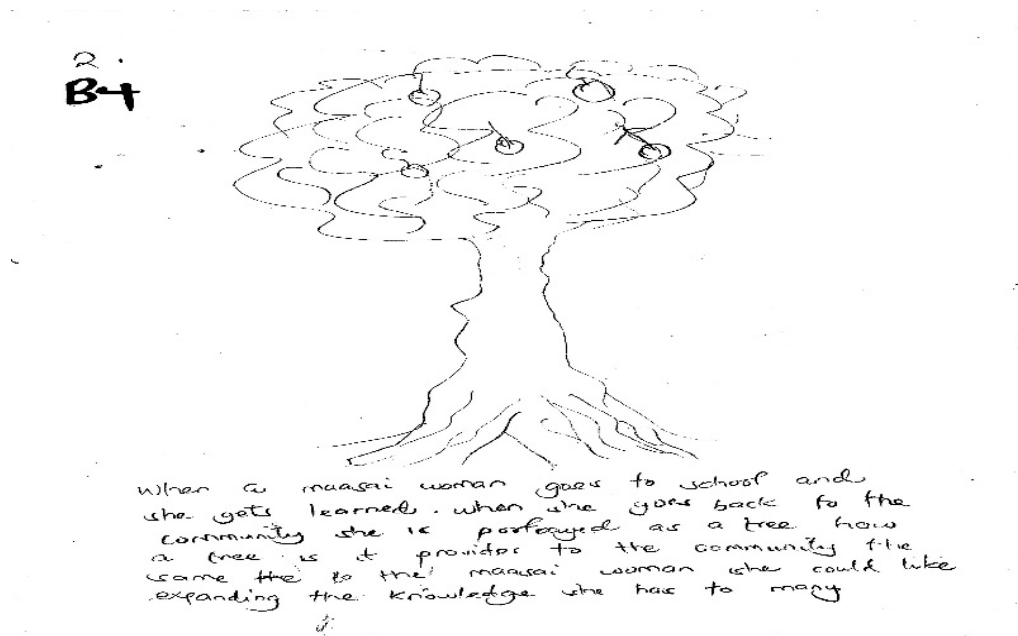 2.
B4
When a maasai woman goes to school and
she gets learned. when she goes back to the
community she is portrayed as a tree how
a tree is it provides to the community the
same the to the maasai woman she could like
expanding the knowledge she has to many